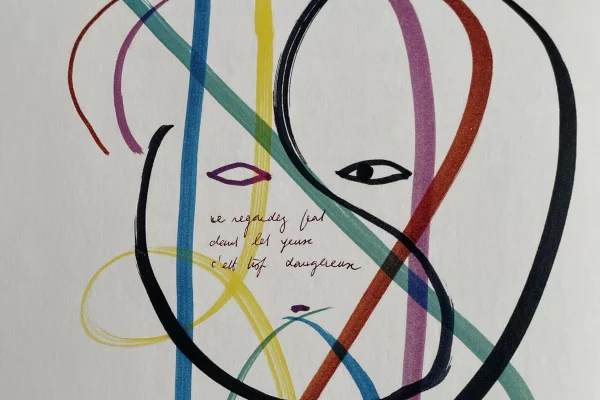 ne regardez pas
dans les yeux
c'est trop dangereux